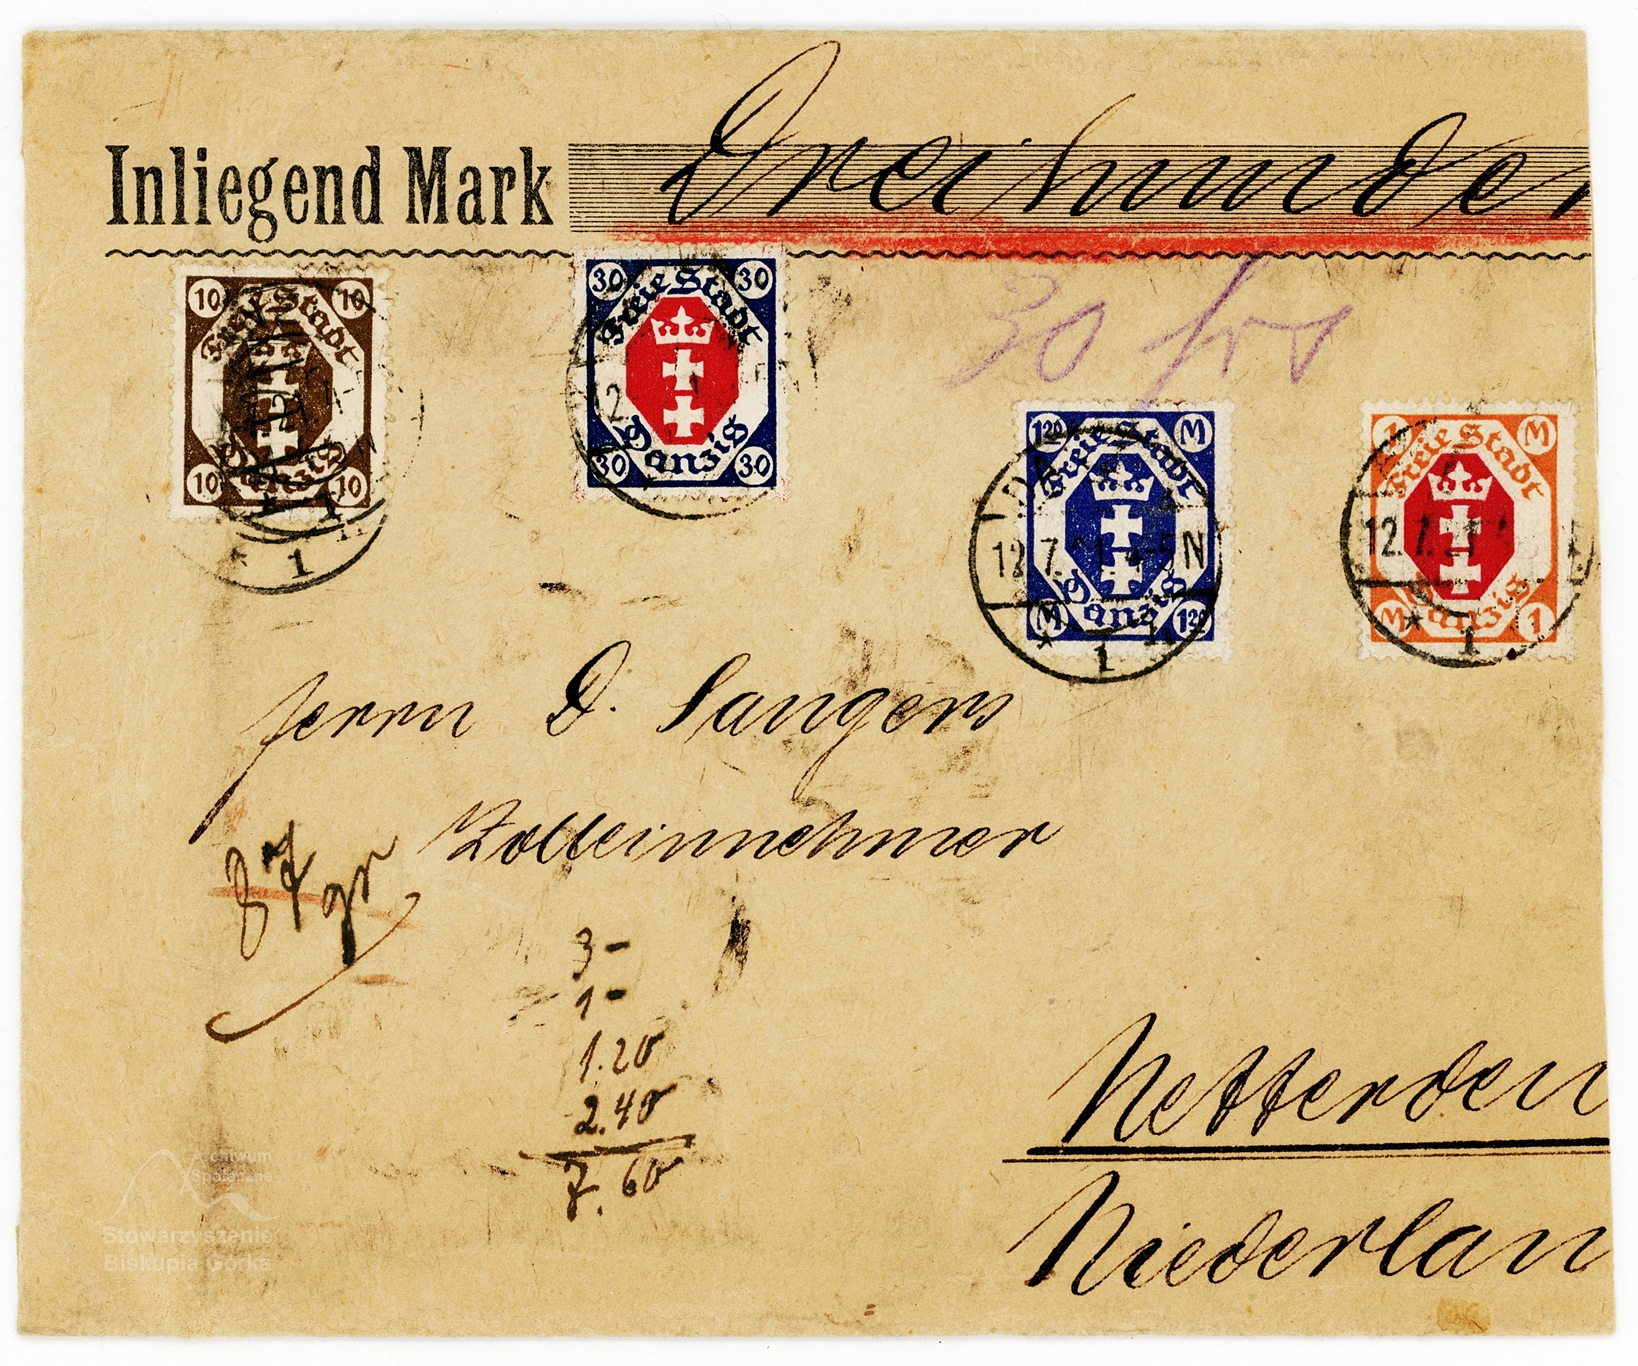 Inliegend Mark Dreihunder
10 Freie Stadt 10
10 Danzig 10
30 Freie Stadt 30
30 Danzig 30
30 frs
1 20 Freie Stadt M
M Danzig 1 20
DA
12.7.21. 4-5 N
* 1
1 Freie Stadt M
M Danzig 1
12.7.21
* 1
Herrn D. Sangers
Zolleinnehmer
87 gr
3 -
1 -
1.20
2.40
7.60
Netterden
Niederlan
Archiwum
Społeczne
Stowarzyszenie
Biskupia Górka